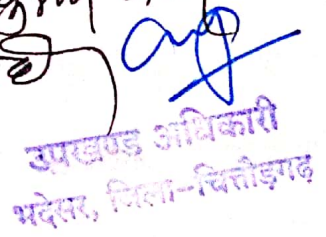 उपखण्ड अधिकारी
भदेसर, जिला--चित्तौड़गढ़